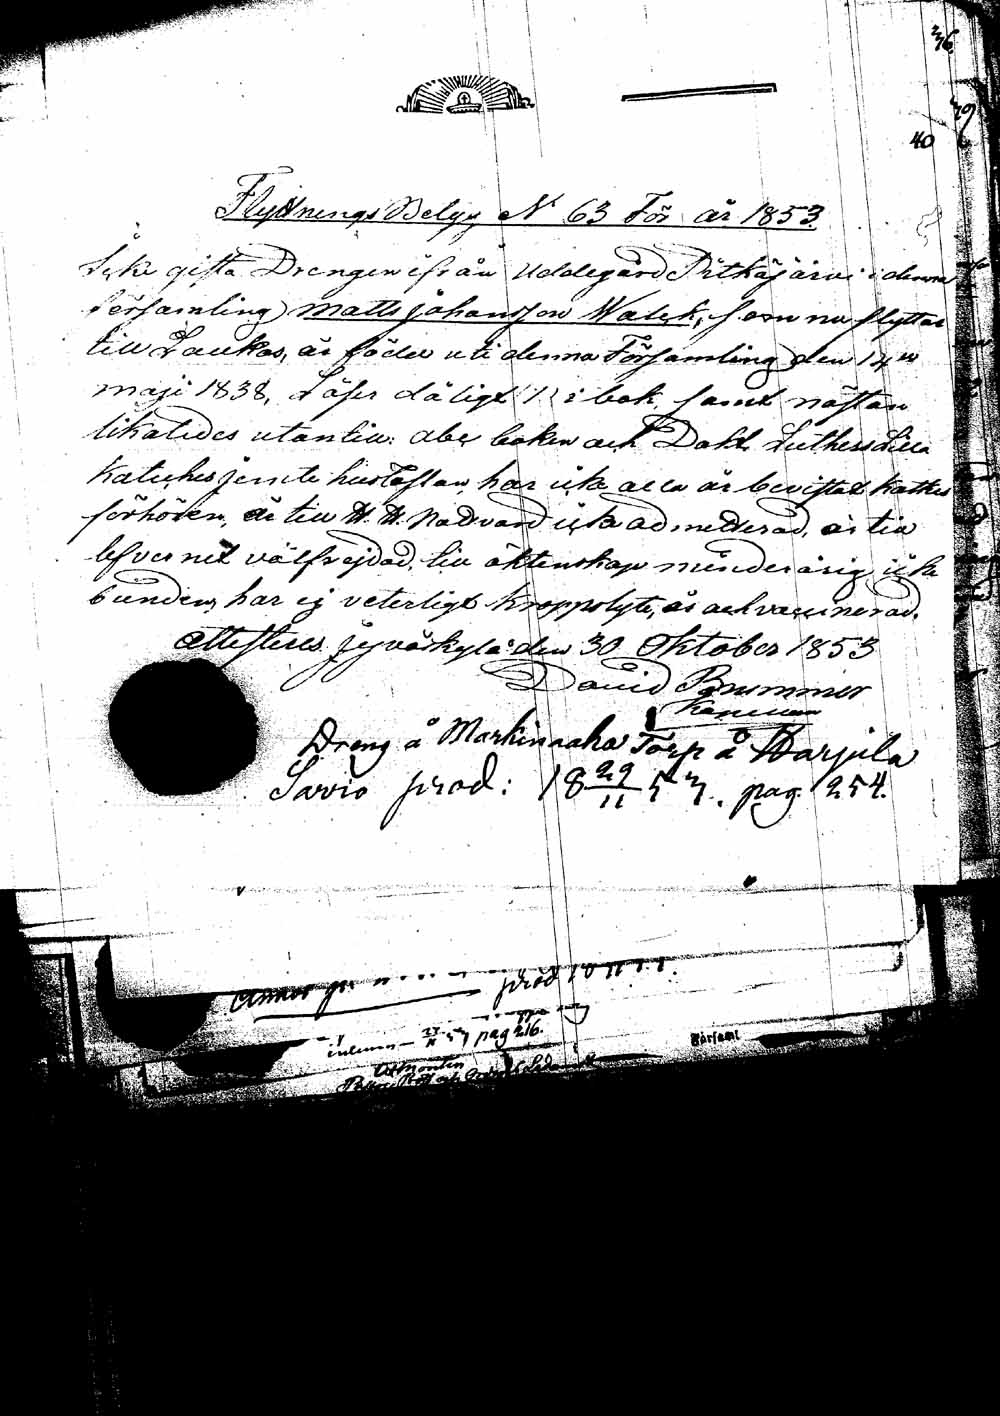 36.
39
40
Flyttnings Betyg N 63 För år 1853.
Icke gifta Drengen ifrån Uddegård Pitkäjärvi i denna
församling Matts Johansson Walek, som nu flyttar
till Laukas, är född uti denna Församling den 14
maji 1838, Läser dåligt i bok samt nästan
likaledes utantill abc boken och Dokt Luthers Lilla
Katches jemte hustaflan, har icke alla år bevistat Katkes
förhören, är till H. H. Nadvard icke admitterad, är till
lefvernet välfrejdad, till äktenskap minderårig icke
bunden, har ej veterligt kroppslyte, är ack vaccinerad.
Attesteres Jyväskylä den 30 Oktober 1853
David Brummer
Dreng å Markinaaho Torp å Harjula
Sarvio prod: 18 29/11 53. pag. 254.
prod 18 11
pag 216.
Församl